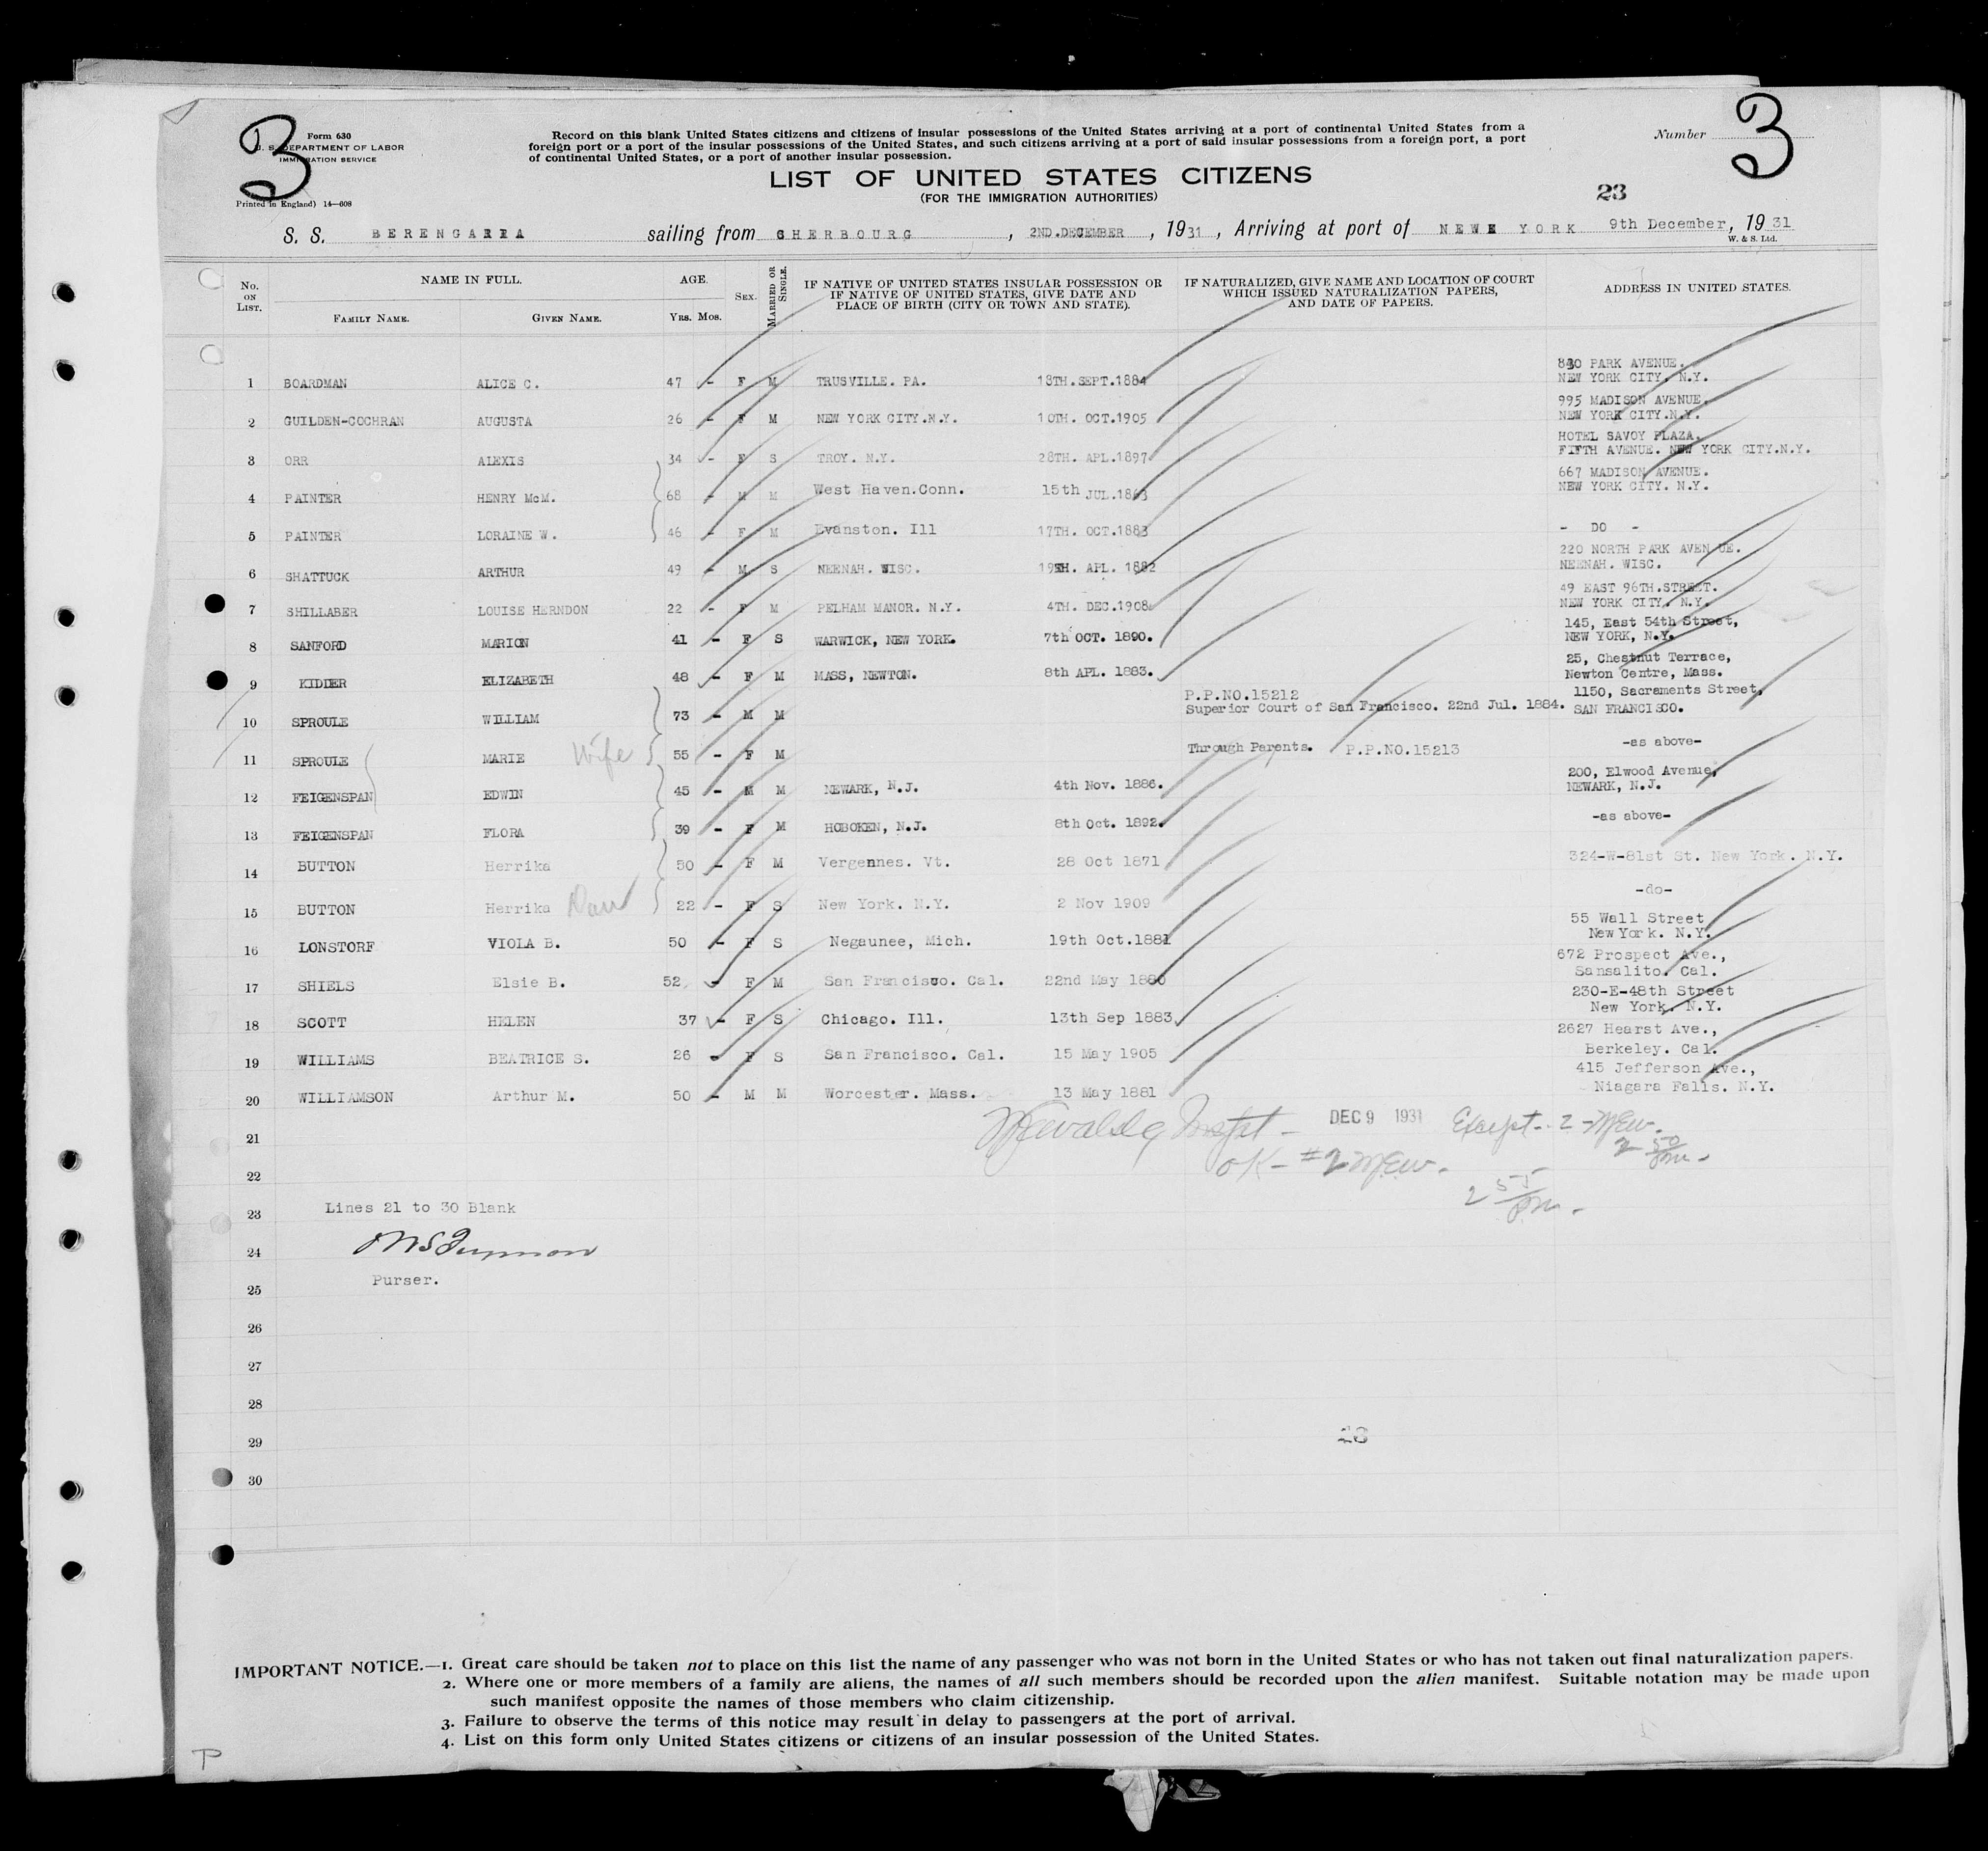 3
3
Form 630
U. S. DEPARTMENT OF LABOR
IMMIGRATION SERVICE
Printed in England) 14—608
Record on this blank United States citizens and citizens of insular possessions of the United States arriving at a port of continental United States from a
foreign port or a port of the insular possessions of the United States, and such citizens arriving at a port of said insular possessions from a foreign port, a port
of continental United States, or a port of another insular possession.
Number
LIST OF UNITED STATES CITIZENS
(FOR THE IMMIGRATION AUTHORITIES)
23
S. S. BERENGARIA sailing from CHERBOURG, 2ND.DECEMBER, 1931, Arriving at port of NEW YORK 9th December, 1931
W. & S. Ltd.
No. ON LIST. NAME IN FULL. AGE. SEX. MARRIED OR SINGLE. IF NATIVE OF UNITED STATES INSULAR POSSESSION OR IF NATIVE OF UNITED STATES, GIVE DATE AND PLACE OF BIRTH (CITY OR TOWN AND STATE). IF NATURALIZED, GIVE NAME AND LOCATION OF COURT WHICH ISSUED NATURALIZATION PAPERS, AND DATE OF PAPERS. ADDRESS IN UNITED STATES.
FAMILY NAME. GIVEN NAME. YRS. MOS.
1 BOARDMAN ALICE C. 47 - F M TRUSVILLE. PA. 18TH.SEPT.1884 PARK AVENUE. NEW YORK CITY. N.Y.
2 GUILDEN-COCHRAN AUGUSTA 26 - F M NEW YORK CITY.N.Y. 10TH. OCT.1905 995 MADISON AVENUE. NEW YORK CITY.N.Y.
3 ORR ALEXIS 34 - F S TROY. N.Y. 28TH. APL.1897 HOTEL SAVOY PLAZA. FIFTH AVENUE. NEW YORK CITY.N.Y.
4 PAINTER HENRY McM. 68 - M M West Haven.Conn. 15th JUL.1863 667 MADISON AVENUE. NEW YORK CITY. N.Y.
5 PAINTER LORAINE W. 46 - F M Evanston. Ill 17TH. OCT.1883 - DO -
6 SHATTUCK ARTHUR 49 - M S NEENAH. WISC. 19TH. APL. 1882 220 NORTH PARK AVENUE. NEENAH. WISC.
7 SHILLABER LOUISE HERNDON 22 - F M PELHAM MANOR. N.Y. 4TH. DEC.1908 49 EAST 96TH.STREET. NEW YORK CITY. N.Y.
8 SANFORD MARION 41 - F S WARWICK, NEW YORK. 7th OCT. 1890. 145, East 54th Street, NEW YORK, N.Y.
9 KIDDER ELIZABETH 48 - F M MASS, NEWTON. 8th APL. 1883. 25, Chestnut Terrace, Newton Centre, Mass.
10 SPROULE WILLIAM 73 - M M P.P.NO.15212 Superior Court of San Francisco. 22nd Jul. 1884. 1150, Sacraments Street, SAN FRANCISCO.
11 SPROULE MARIE Wife 55 - F M Through Parents. P.P.NO.15213 -as above-
12 FEIGENSPAN EDWIN 45 - M M NEWARK, N.J. 4th Nov. 1886. 200, Elwood Avenue, NEWARK, N.J.
13 FEIGENSPAN FLORA 39 - F M HOBOKEN, N.J. 8th Oct. 1892. -as above-
14 BUTTON Herrika 50 - F M Vergennes. Vt. 28 Oct 1871 324-W-81st St. New York. N.Y.
15 BUTTON Herrika Dau 22 - F S New York. N.Y. 2 Nov 1909 -do-
16 LONSTORF VIOLA B. 50 - F S Negaunee, Mich. 19th Oct.1881 55 Wall Street New York. N.Y.
17 SHIELS Elsie B. 52 - F M San Francisco. Cal. 22nd May 1880 672 Prospect Ave., Sansalito. Cal.
18 SCOTT HELEN 37 - F S Chicago. Ill. 13th Sep 1883 230-E-48th Street New York. N.Y.
19 WILLIAMS BEATRICE S. 26 - F S San Francisco. Cal. 15 May 1905 2627 Hearst Ave., Berkeley. Cal.
20 WILLIAMSON Arthur M. 50 - M M Worcester. Mass. 13 May 1881 415 Jefferson Ave., Niagara Falls. N.Y.
21 Inspt - DEC 9 1931 Except - 2 - MEW. 2 50 pm -
22 OK - #2 MEW. 2 55 pm.
23 Lines 21 to 30 Blank
24
25 Purser.
26
27
28
29 23
30
IMPORTANT NOTICE.—1. Great care should be taken not to place on this list the name of any passenger who was not born in the United States or who has not taken out final naturalization papers.
2. Where one or more members of a family are aliens, the names of all such members should be recorded upon the alien manifest. Suitable notation may be made upon
such manifest opposite the names of those members who claim citizenship.
3. Failure to observe the terms of this notice may result in delay to passengers at the port of arrival.
4. List on this form only United States citizens or citizens of an insular possession of the United States.
P